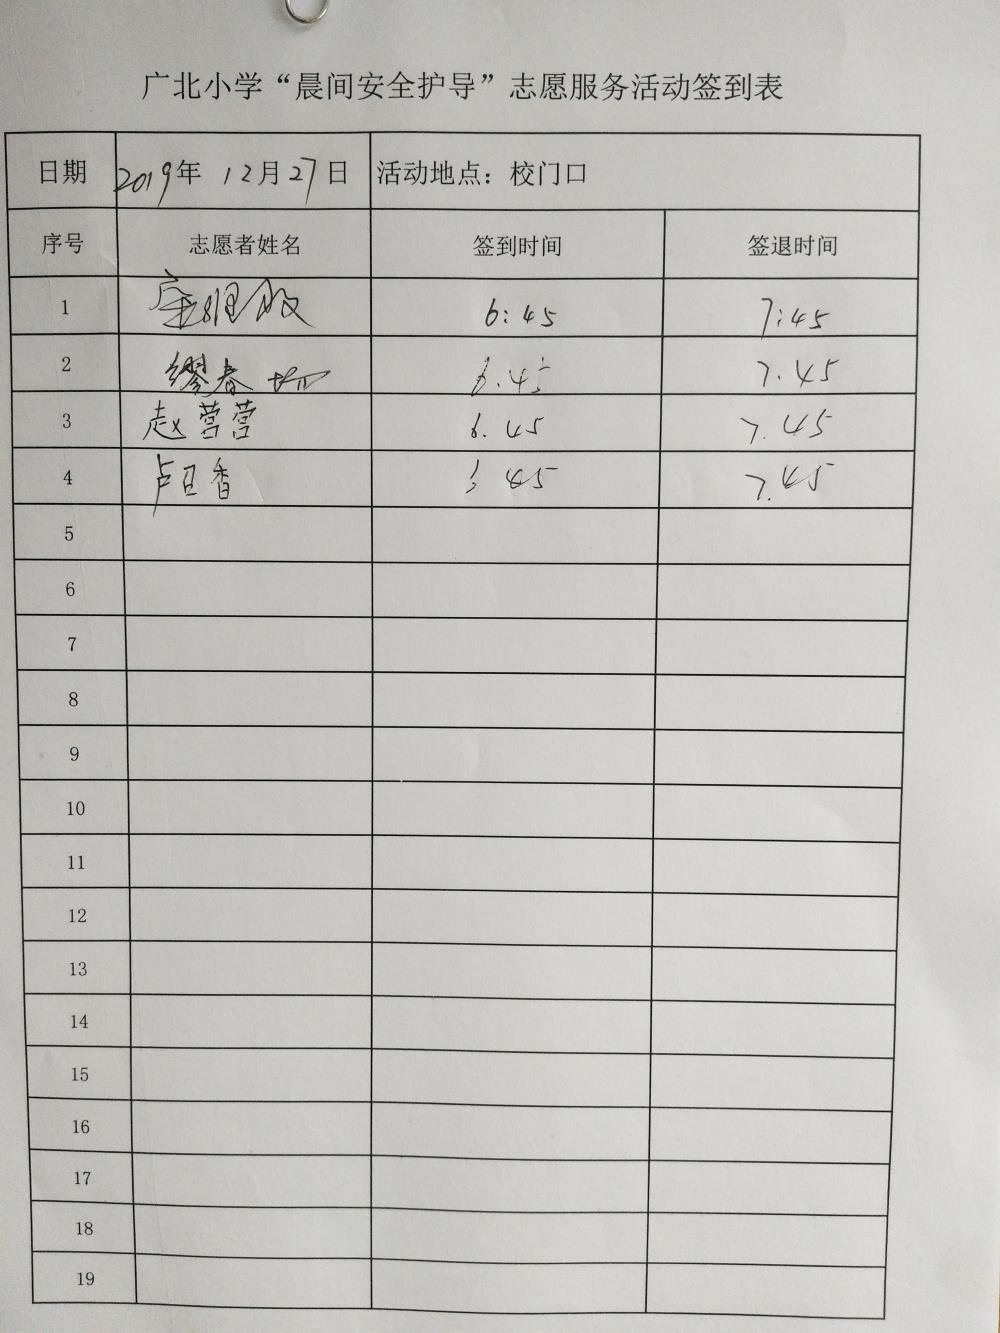 广北小学“晨间安全护导”志愿服务活动签到表
日期 2019年 12月27日 活动地点：校门口
序号 志愿者姓名 签到时间 签退时间
1 6:45 7:45
2 缪春 6.45 7.45
3 赵营营 6.45 7.45
4 卢卫香 45 7.45
5
6
7
8
9
10
11
12
13
14
15
16
17
18
19